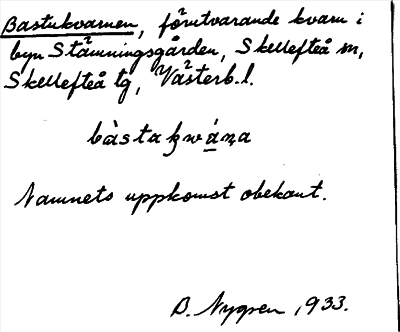 Bastukvarnen, förutvarande kvarn i
byn Stämningsgården, Skellefteå sn,
Skellefteå tg, Västerb. l.
bàstakwána
Namnets uppkomst obekant.
B. Nygren 1933.